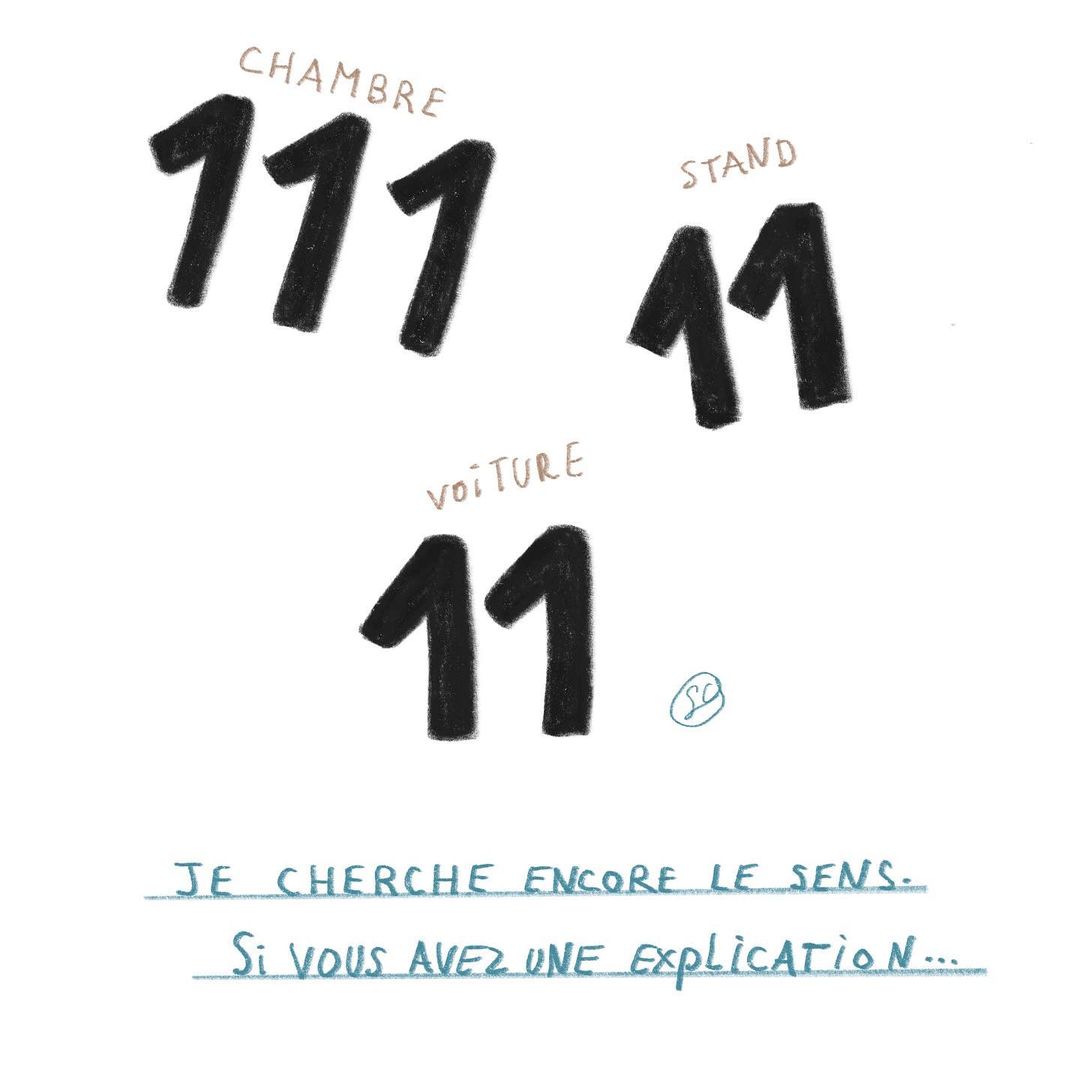 CHAMBRE
111
STAND
11
VOiTURE
11
SC
JE CHERCHE ENCORE LE SENS.
Si VOUS AVEZ UNE EXPLiCATiON...